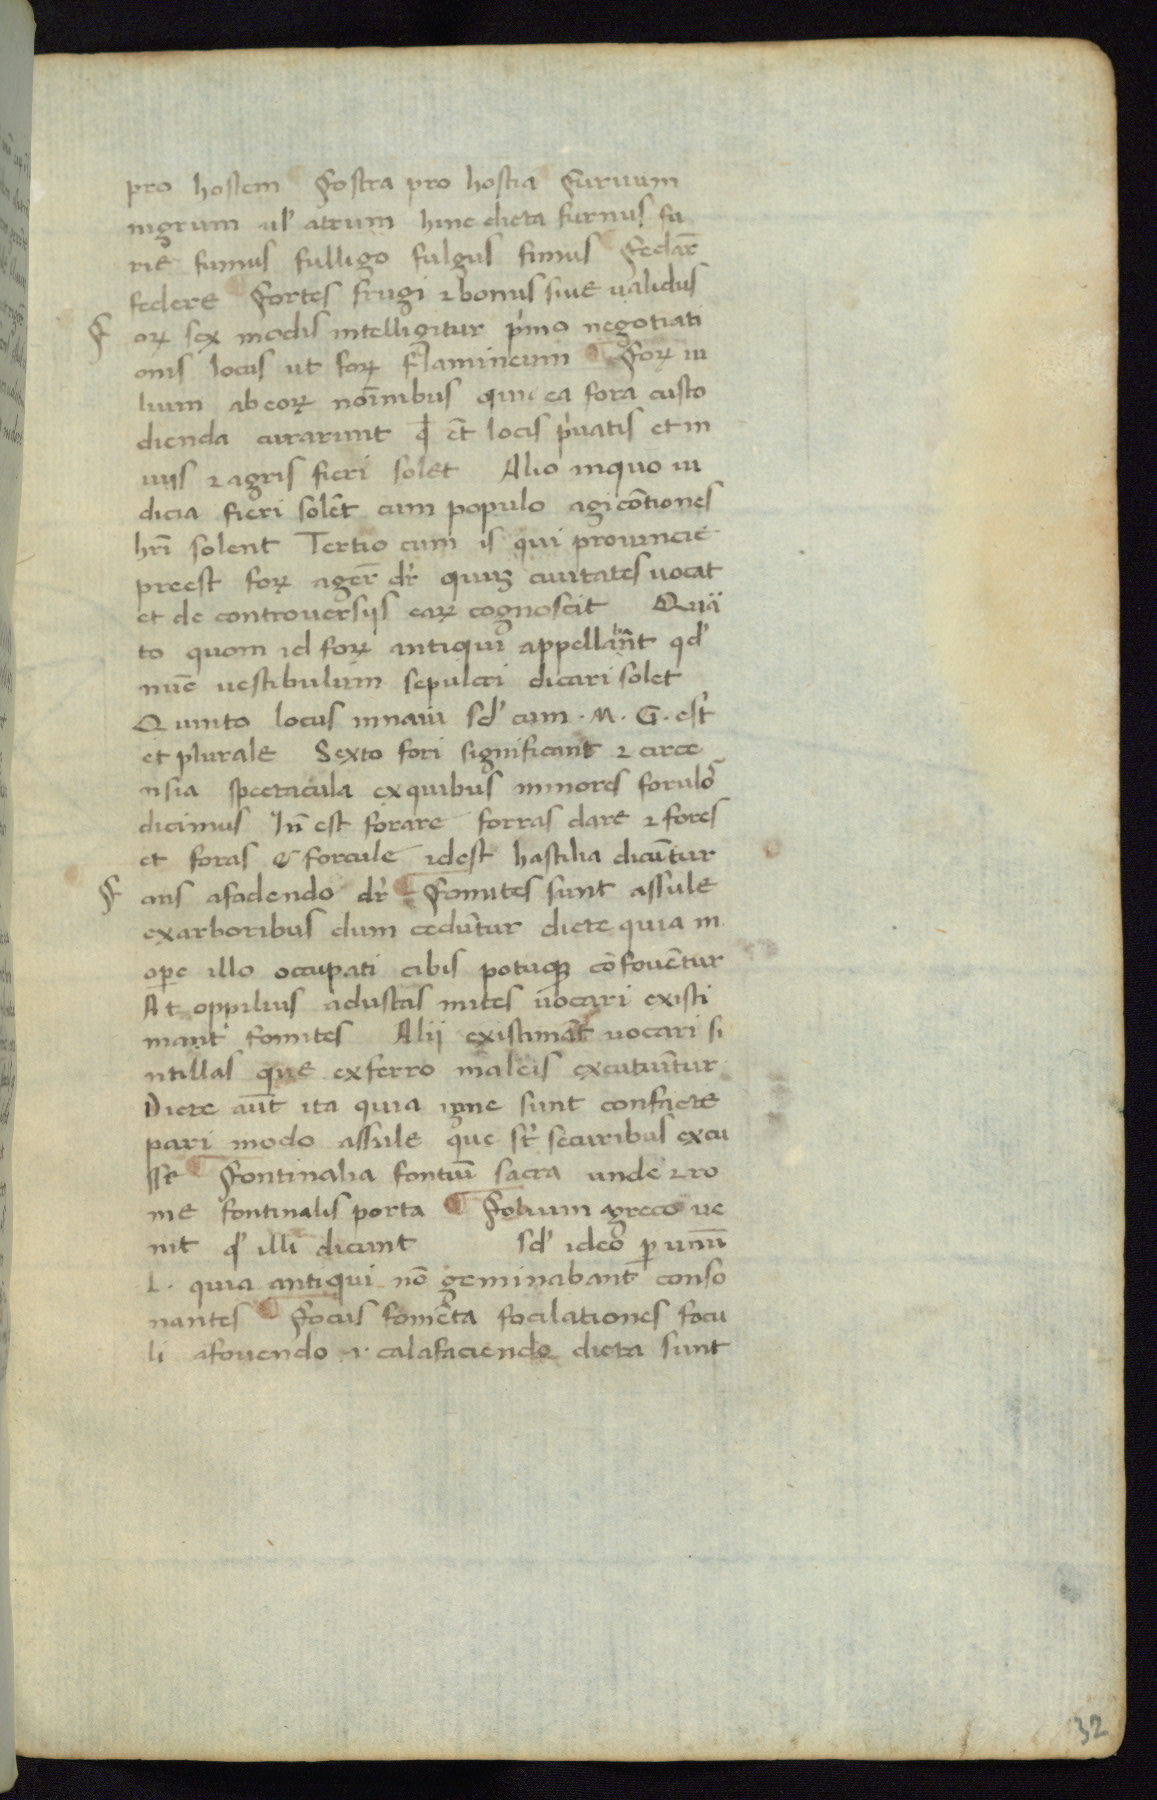 pro hostem Fostra pro hostia Furuum
nigrum ul' atrum hinc dicta furnus fu
rie fumus fulligo fulgus fimus Fedar̄
federe Fortes frugi ⁊ bonus siue ualidus
F orꝝ sex modis intelligitur p'mo negotiati
onis locus ut forꝝ Flamineum Forꝝ iu
lium ab eorꝝ noīnibus qui ea fora custo
dienda curarunt qđ et̄ locis p'uatis et in
uijs ⁊ agris fieri solet Alio in quo iu
dicia fieri solēt cum populo agi cōtiones
hr̄i solent Tertio cum is qui prouincie
preest forꝝ ager̄ dr̄ quūꝫ ciuitates uocat
et de controuersijs earꝝ cognoscit Quā
to quom id forꝝ antiqui appellabāt qd'
nūc uestibulum sepulcri dicari solet
Quinto locus in naui sd' cum . M . G . est
et plurale Sexto fori significant ⁊ circe
nsia spectacula ex quibus minores forulōs
dicimus In̄ est forare forras dare ⁊ fores
et foras & forcule idest hastilia dicūtur
F ans a fadendo dr̄ Fomites sunt assule
ex arboribus dum cedūtur dicte quia in
oꝑe illo occupati cibis potuqꝫ cōfouētur
At oppilius adustas uites uocari existi
mant fomites Alij existimāt uocari si
ntillas que ex ferro maleis excutiūtur
Dicte aūt ita quia igne sunt confacte
pari modo assule que st̄ securibus excu
sse Fontinalia fontiū sacra unde ⁊ ro
me fontinalis porta Folium a greco ue
nit qd' illi dicunt sd' ideo ꝑ unū
L . quia antiqui nō geminabant conso
nantes Focus fomēta focilationes focu
li a fouendo .i. calafaciendo dicta sunt
32